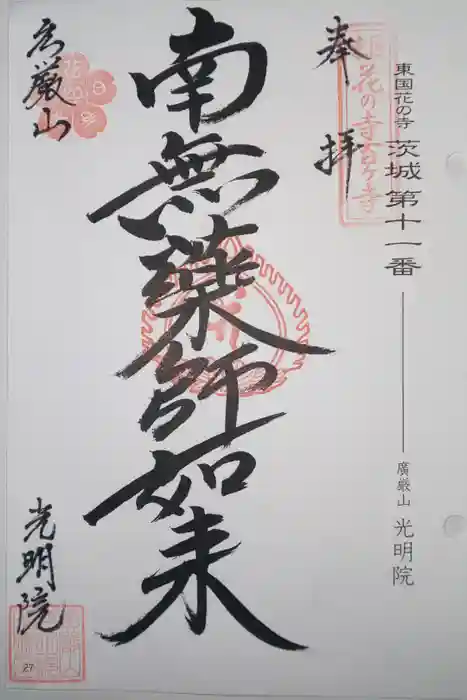 東国花の寺 茨城 第十一番
廣厳山 光明院
奉拝
花の寺百ヶ寺
南無薬師如来
広厳山
光明院
27